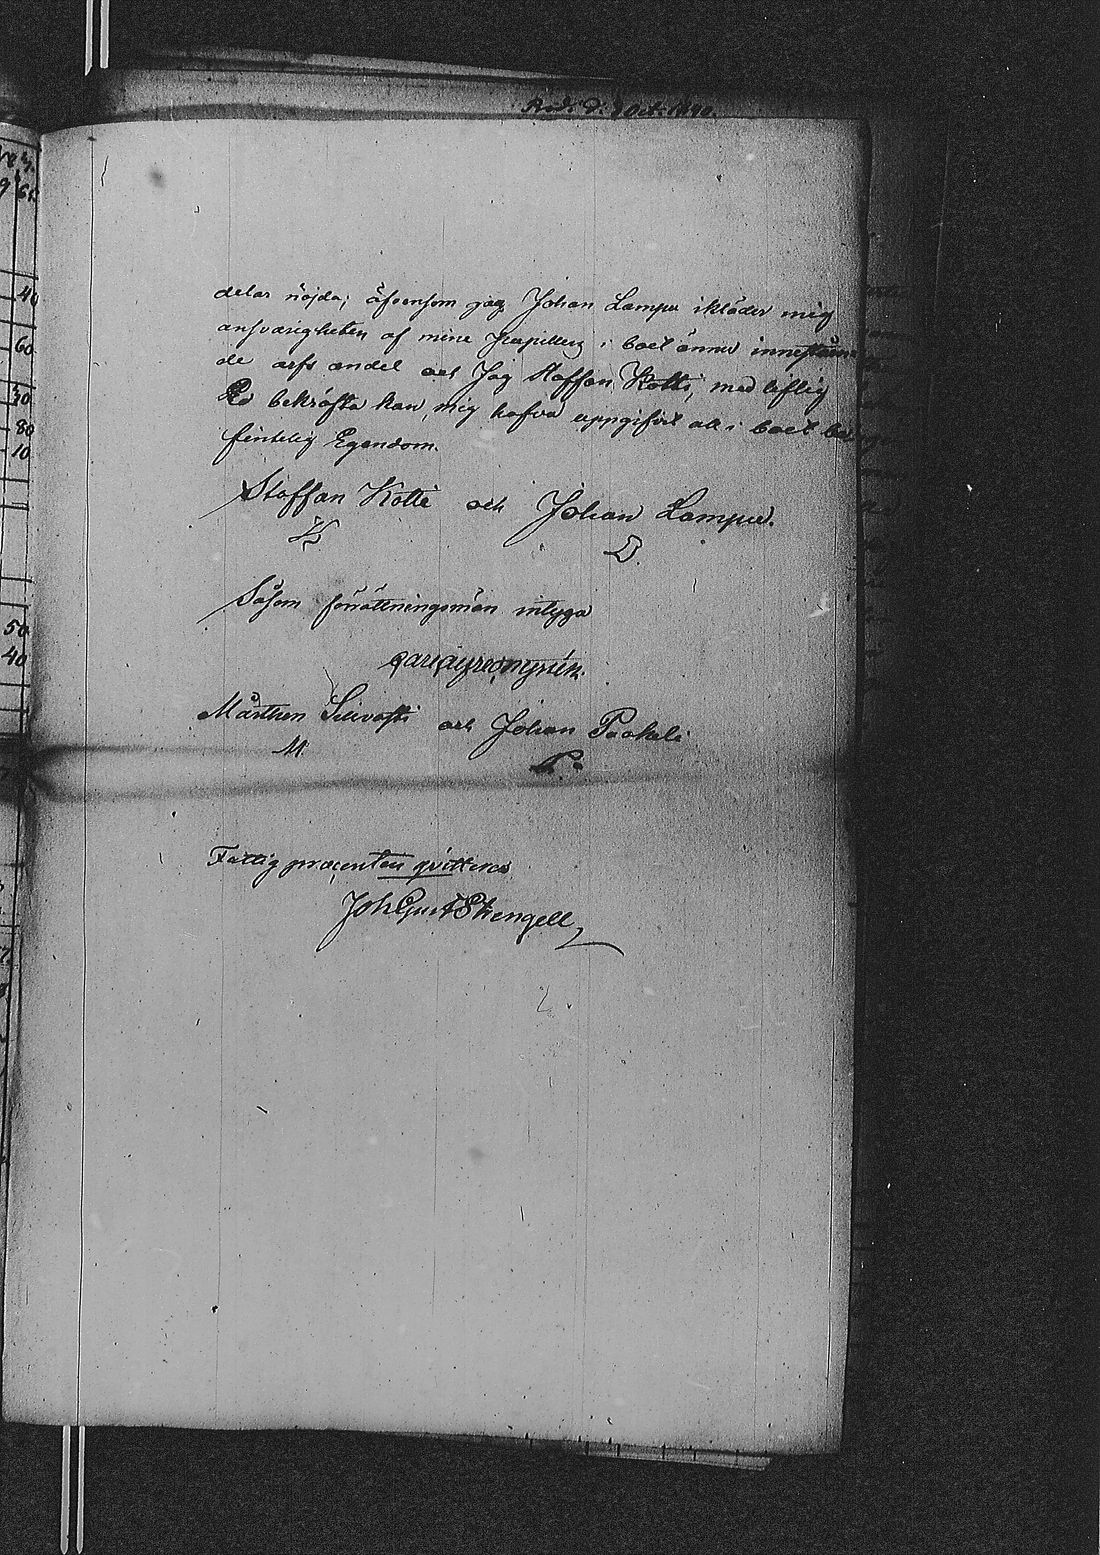 Red. d. 9 Oct. 1840.
delar nöjda; äfvensom jag Johan Lampu ikläder mig
ansvarigheten af mine Pupillers i boet ännu innestån-
de arfs andel och Jag Staffan Kotti, med liflig
Ed bekräfta kan, mig hafva uppgifvit all i boet be-
fintelig Egendom.
Staffan Kotti och Johan Lampu.
Såsom förrättningsmän intyga
Mårthen Siivosti och Johan Paakeli
M P.
Fattig procenten qvitteras
Joh Gust Strengell
40
60
30
80
10
50
40